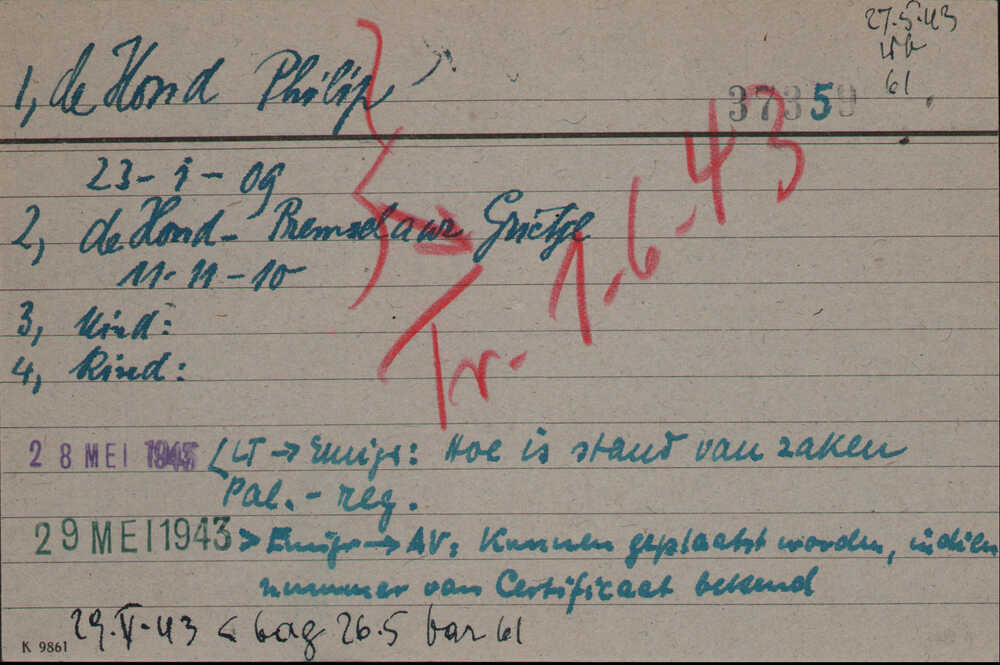 27.5.43
61
1, de Hond Philip
3735
23-1-09
2, de Hond- Premselaar Grietje
11-11-10
3, Kind:
4, Kind:
Tr. 1.6.43
28 MEI 1943 LT → Emigr: Hoe is stand van zaken
Pal.-reg.
29 MEI 1943 > Emigr → AV: Kunnen geplaatst worden, indien
nummer van Certificaat bekend
29.V.43 < bag 26.5 bar 61
K 9861